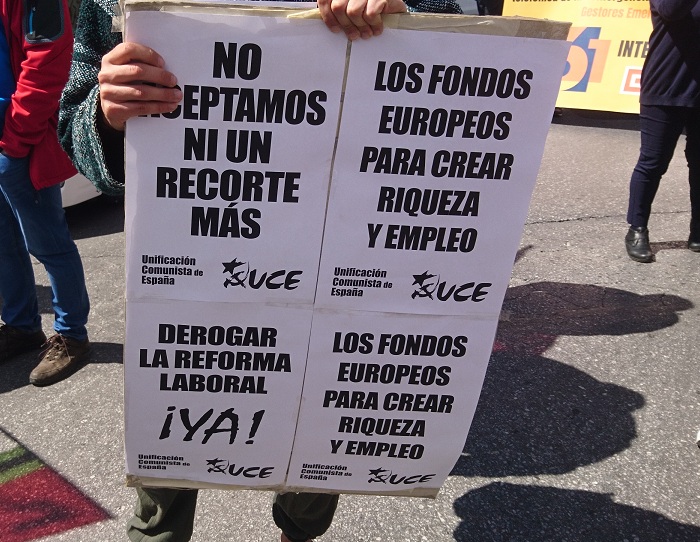 NO
ACEPTAMOS
NI UN
RECORTE
MÁS
Unificación
Comunista de
España
UCE
LOS FONDOS
EUROPEOS
PARA CREAR
RIQUEZA
Y EMPLEO
Unificación
Comunista de
España
UCE
DEROGAR
LA REFORMA
LABORAL
¡YA!
Unificación
Comunista de
España
UCE
LOS FONDOS
EUROPEOS
PARA CREAR
RIQUEZA
Y EMPLEO
Unificación
Comunista de
España
UCE
Gestores
INTE